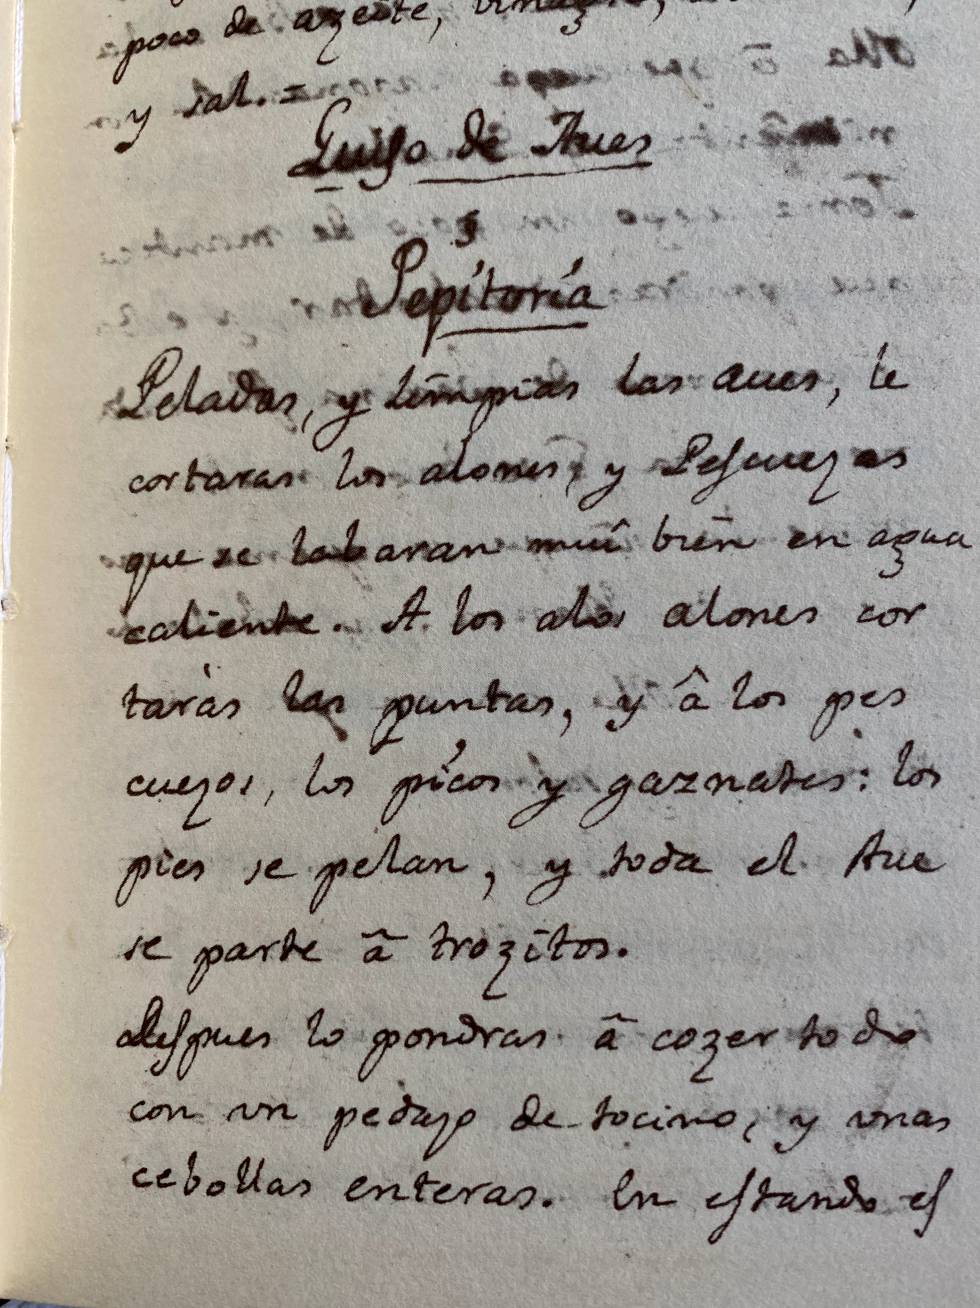 poco de azeite, vinagre,
y sal. =
Guiso de Aues
Pepitoria
Peladas, y limpias las aues, le
cortaras los alones, y Pescuezos
que se labaran mui bien en agua
caliente. A los alos alones cor
tarás las puntas, y â los pes
cuezos, los picos y gaznates: los
pies se pelan, y toda el Aue
se parte ã trozitos.
Despues lo pondras ã cozer todo
con un pedazo de tocino, y vnas
cebollas enteras. En estando es